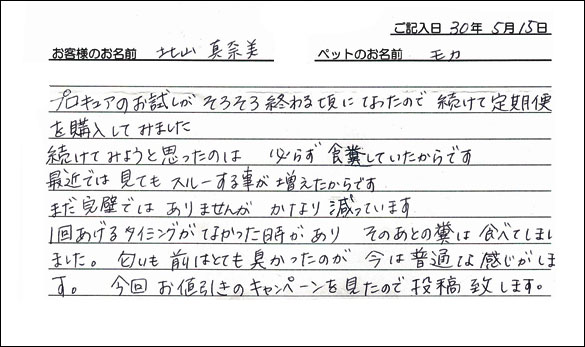 ご記入日 30年 5月15日
お客様のお名前 北山 真奈美 ペットのお名前 モカ
プロキュアのお試しが そろそろ終わる頃になったので 続けて定期便
を購入してみました
続けてみようと思ったのは 必らず 食糞していたからです
最近では 見ても スルーする事が 増えたからです
まだ完璧では ありませんが かなり 減っています
1回あげるタイミングがなかった時があり そのあとの糞は 食べてしまい
ました。 匂いも 前はとても臭かったのが 今は普通な感じがしま
す。 今回 お値引きのキャンペーンを見たので 投稿致します。